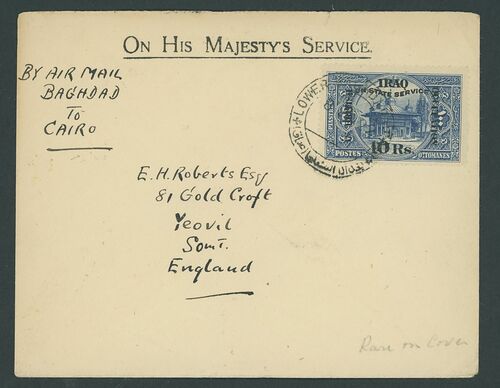 ON HIS MAJESTY'S SERVICE.
BY AIR MAIL
BAGHDAD
To
CAIRO
IRAQ
ON STATE SERVICE
10 Rs
POSTES OTTOMANES
LOWER
E. H. Roberts Esq
81 Gold Croft
Yeovil
Somt.
England
Rare on Cover